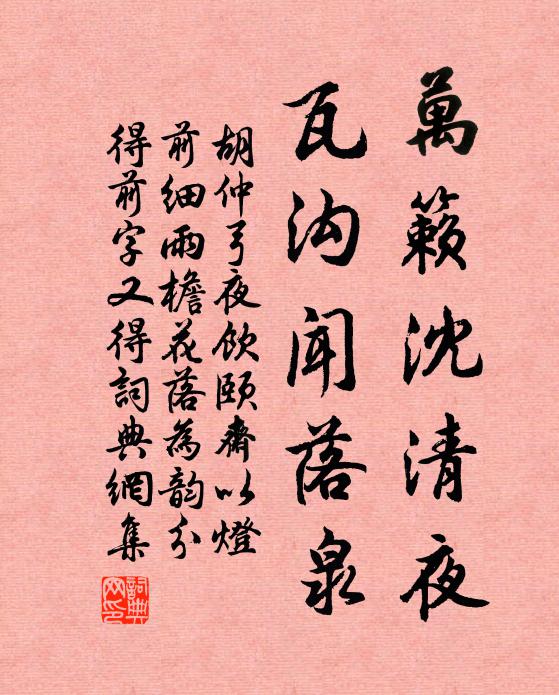 萬籟沈清夜
瓦沟闻落泉
胡仲弓夜飲頤齋以燈
前細雨檐花落為韵分
得前字又得詞典網集
詞典網印